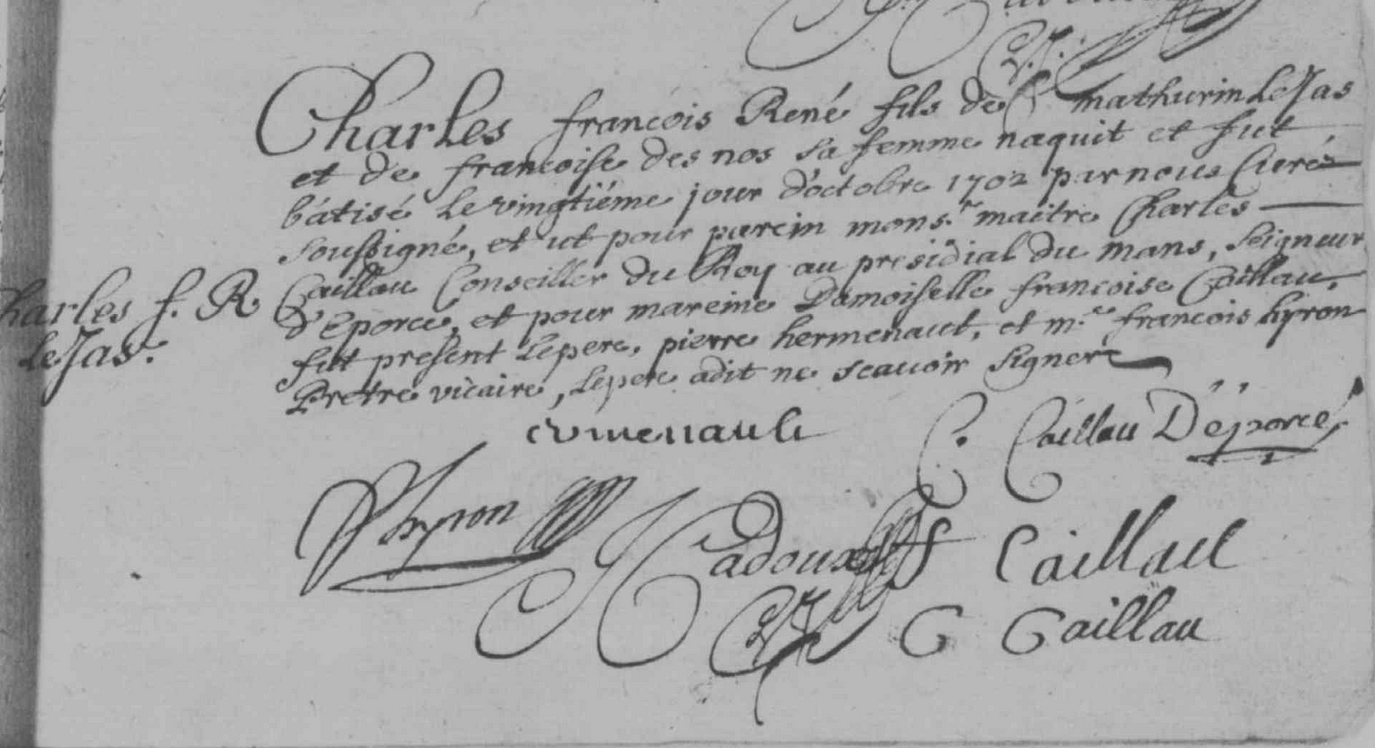 Charles francois René fils de mathurin LeJas
et de francoise des nos sa femme naquit et fut
bátisé le vingtiéme jour d'octobre 1702 par nous Curé
soussigné, et ut pour parein mons.r maitre Charles
Caillau Conseiller du Roy au presidial du mans, seigneur
d'Eporcé, et pour mareine Damoiselle francoise Caillau,
fut present le pere, pierre hermenault, et m.re francois hyron
Pretre vicaire, le pere a dit ne scauoir signer
harles f. R
le Jas.
ermenault
C. Caillau D'éporcé
hyron
Cadoux
f Caillau
C Caillau